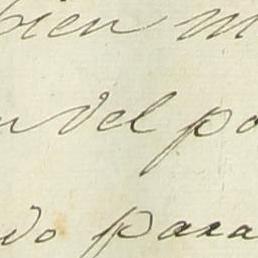 bien m
n del po
do para